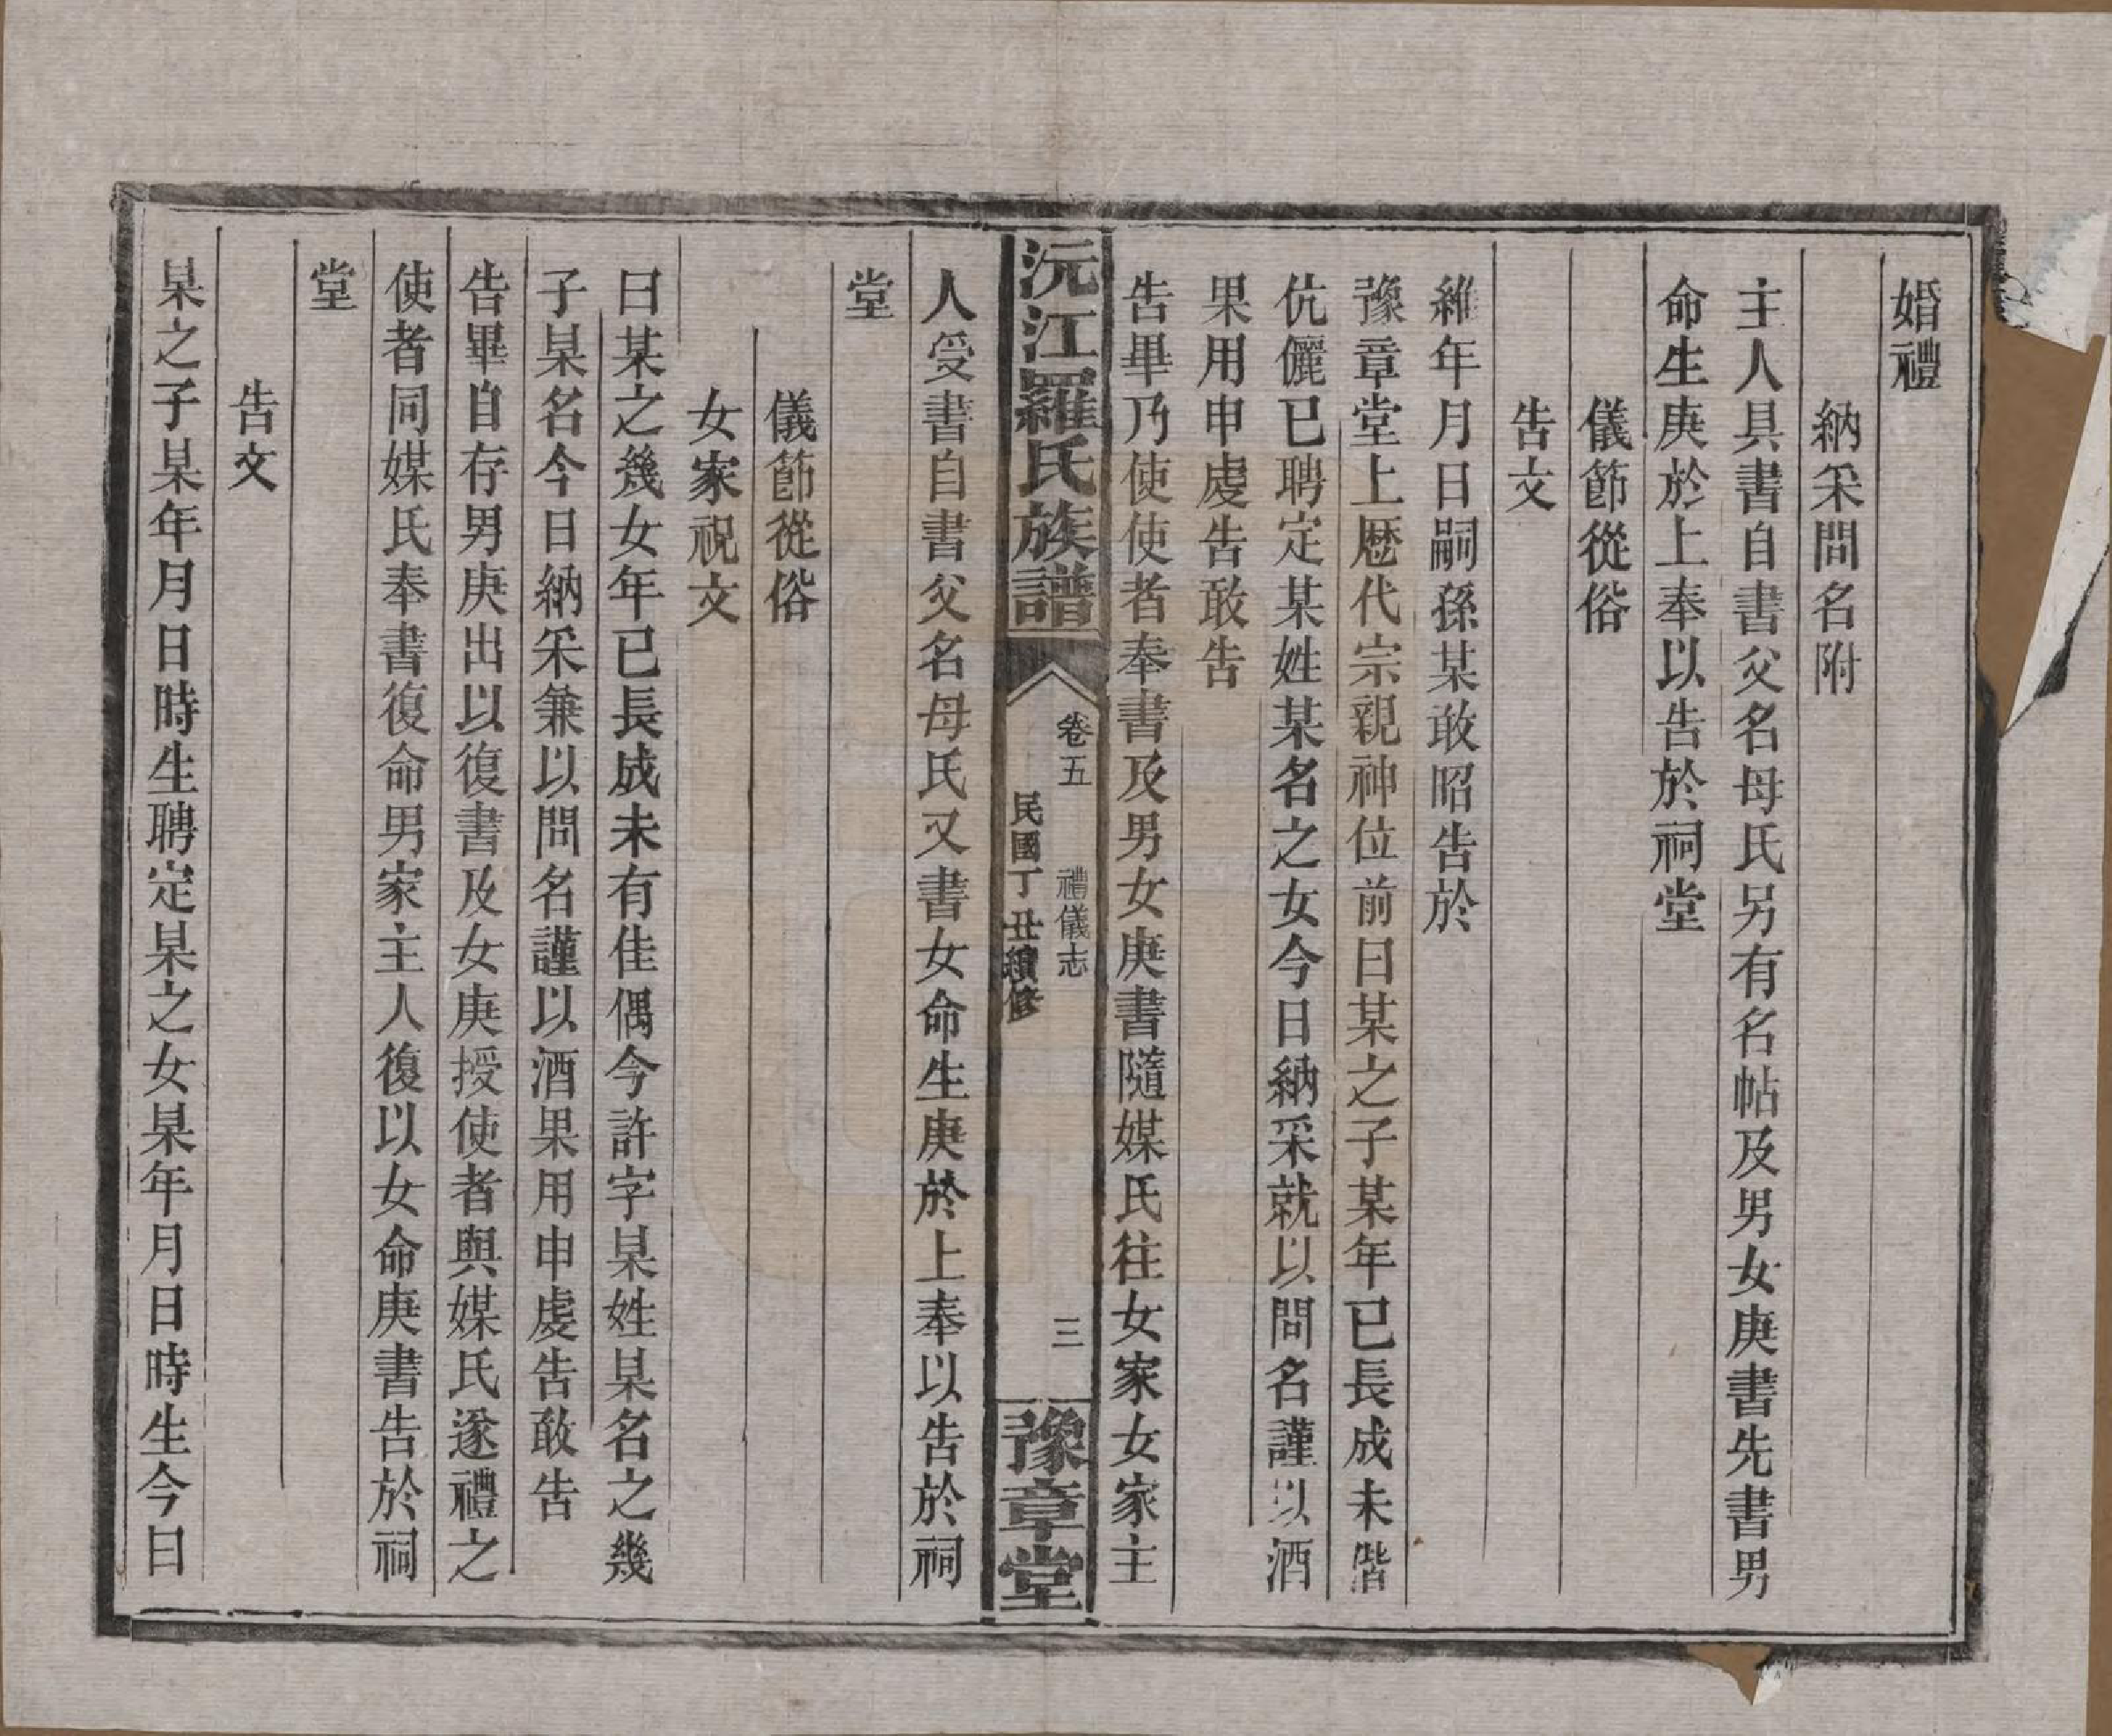 婚禮
納采問名附
主人具書自書父名母氏另有名帖及男女庚書先書男
命生庚於上奉以告於祠堂
儀節從俗
告文
維年月日嗣孫某敢昭告於
豫章堂上歷代宗親神位前曰某之子某年已長成未偕
伉儷已聘定某姓某名之女今日納采就以問名謹以酒
果用申虔告敢告
告畢乃使使者奉書及男女庚書隨媒氏往女家女家主
沅江羅氏族譜
卷五
禮儀志
三
民國丁丑續修
豫章堂
人受書自書父名母氏又書女命生庚於上奉以告於祠
堂
儀節從俗
女家祝文
曰某之幾女年已長成未有佳偶今許字某姓某名之幾
子某名今日納采兼以問名謹以酒果用申虔告敢告
告畢自存男庚出以復書及女庚授使者與媒氏遂禮之
使者同媒氏奉書復命男家主人復以女命庚書告於祠
堂
告文
某之子某年月日時生聘定某之女某年月日時生今日